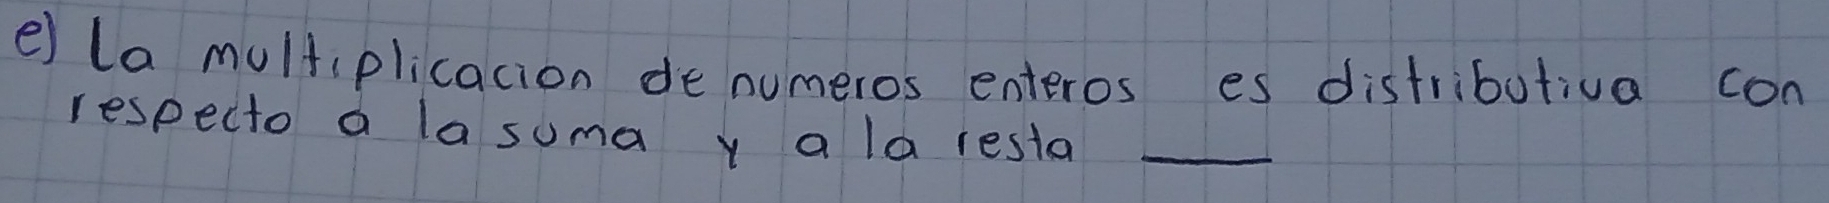 e) la multiplicacion de numeros enteros es distributiva con
respecto a la suma y a la resta ____